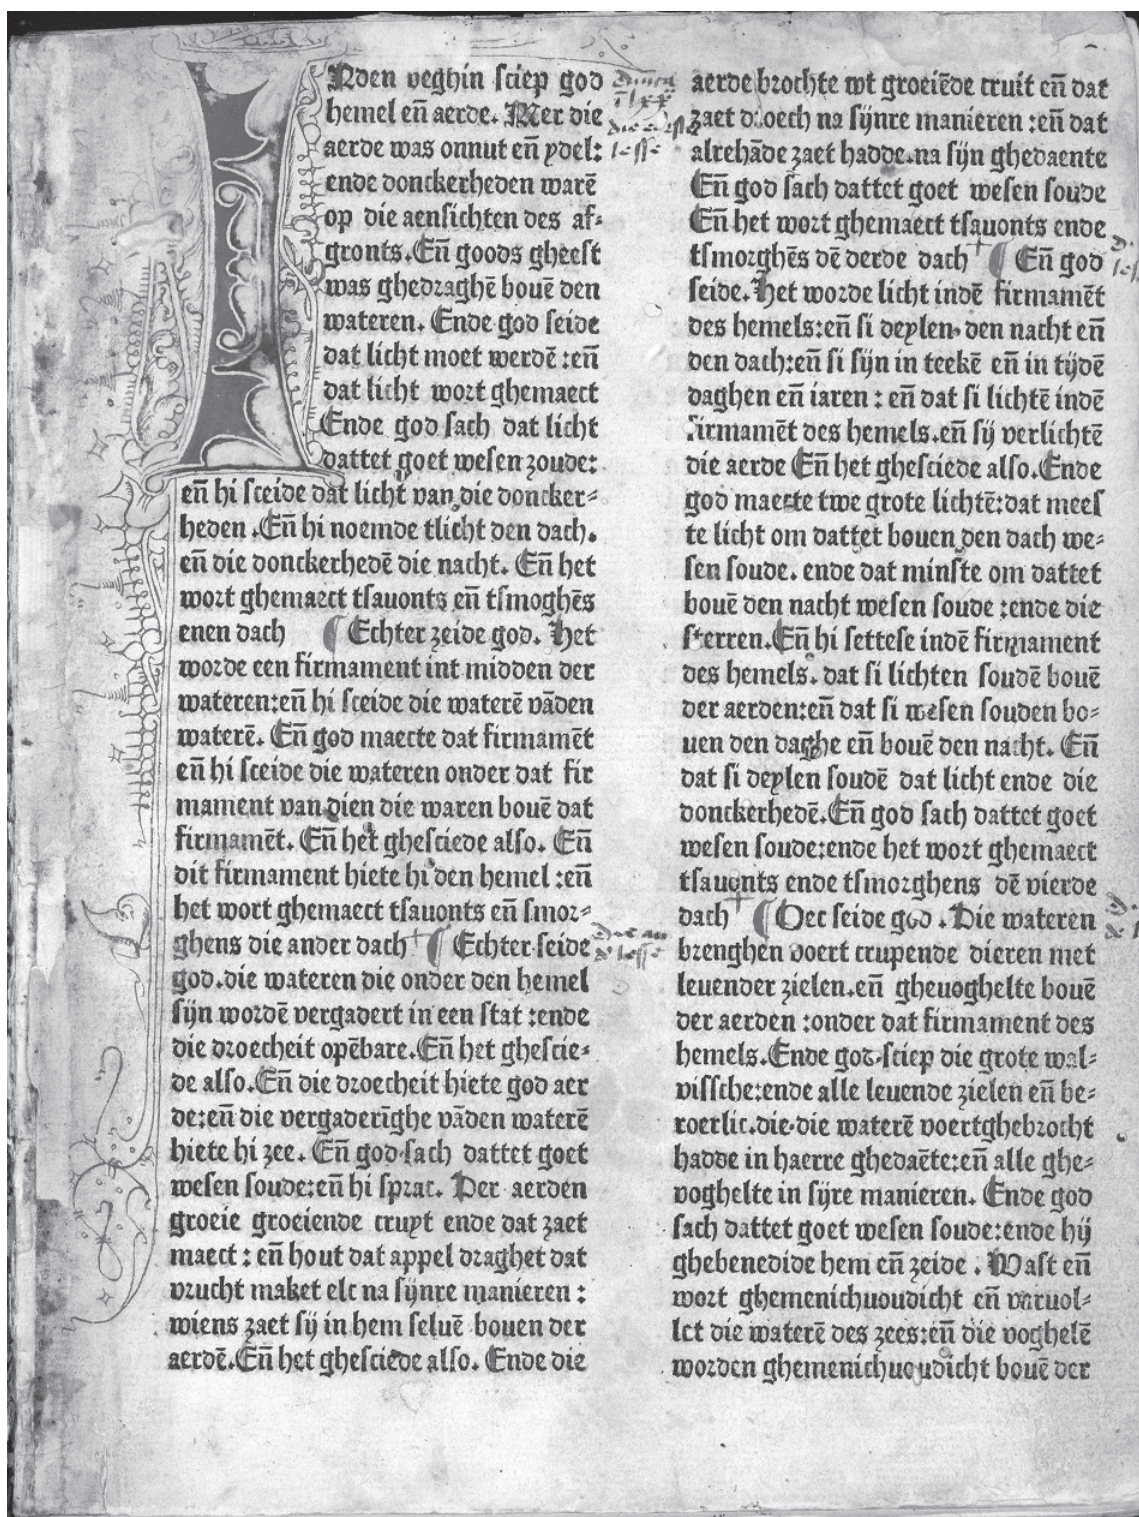 INden beghin sciep god
hemel eñ aerde. Mer die
aerde was onnut eñ ydel:
ende donckerheden warē
op die aensichten des af⸗
gronts. Eñ goods gheest
was ghedraghē bouē den
wateren. Ende god seide
dat licht moet werdē : eñ
dat licht wort ghemaect
Ende god sach dat licht
dattet goet wesen zoude:
eñ hi sceide dat licht van die doncker⸗
heden . Eñ hi noemde tlicht den dach.
eñ die donckerhedē die nacht. Eñ het
wort ghemaect tsauonts eñ tsmoghēs
enen dach ¶ Echter zeide god. Het
worde een firmament int midden der
wateren: eñ hi sceide die waterē vāden
waterē. Eñ god maecte dat firmamēt
eñ hi sceide die wateren onder dat fir
mament van dien die waren bouē dat
firmamēt. Eñ het ghesciede also. Eñ
dit firmament hiete hi den hemel : eñ
het wort ghemaect tsauonts eñ smor⸗
ghens die ander dach ¶ Echter seide
god. die wateren die onder den hemel
sijn wordē vergadert in een stat : ende
die droecheit opēbare. Eñ het ghescie⸗
de also. Eñ die droecheit hiete god aer
de: eñ die vergaderīghe vāden waterē
hiete hi zee. Eñ god sach dattet goet
wesen soude: eñ hi sprac. Der aerden
groeie groeiende cruyt ende dat zaet
maect : eñ hout dat appel draghet dat
vrucht maket elc na sijnre manieren :
wiens zaet sij in hem seluē bouen der
aerdē. Eñ het ghesciede also. Ende die
aerde brochte wt groeiēde cruit eñ dat
zaet droech na sijnre manieren : eñ dat
alrehāde zaet hadde. na sijn ghedaente
Eñ god sach dattet goet wesen soude
Eñ het wort ghemaect tsauonts ende
tsmorghēs dē derde dach ¶ Eñ god
seide. Het worde licht indē firmamēt
des hemels: eñ si deylen den nacht eñ
den dach: eñ si sijn in teekē eñ in tijdē
daghen eñ iaren : eñ dat si lichtē indē
firmamēt des hemels. eñ sij verlichtē
die aerde Eñ het ghesciede also. Ende
god maecte twe grote lichtē: dat mees
te licht om dattet bouen den dach we⸗
sen soude. ende dat minste om dattet
bouē den nacht wesen soude : ende die
sterren. Eñ hi settese indē firmament
des hemels. dat si lichten soudē bouē
der aerden: eñ dat si wesen souden bo⸗
uen den daghe eñ bouē den nacht. Eñ
dat si deylen soudē dat licht ende die
donckerhedē. Eñ god sach dattet goet
wesen soude: ende het wort ghemaect
tsauonts ende tsmorghens dē vierde
dach ¶ Oec seide god . Die wateren
brenghen voert crupende dieren met
leuender zielen. eñ gheuoghelte bouē
der aerden : onder dat firmament des
hemels. Ende god sciep die grote wal⸗
vissche: ende alle leuende zielen eñ be⸗
roerlic. die die waterē voertghebrocht
hadde in haerre ghedaēte: eñ alle ghe⸗
voghelte in sijre manieren. Ende god
sach dattet goet wesen soude: ende hij
ghebenedide hem eñ zeide . Wast eñ
wort ghemenichuoudicht eñ veruol⸗
let die waterē des zees: eñ die voghelē
worden ghemenichuoudicht bouē der